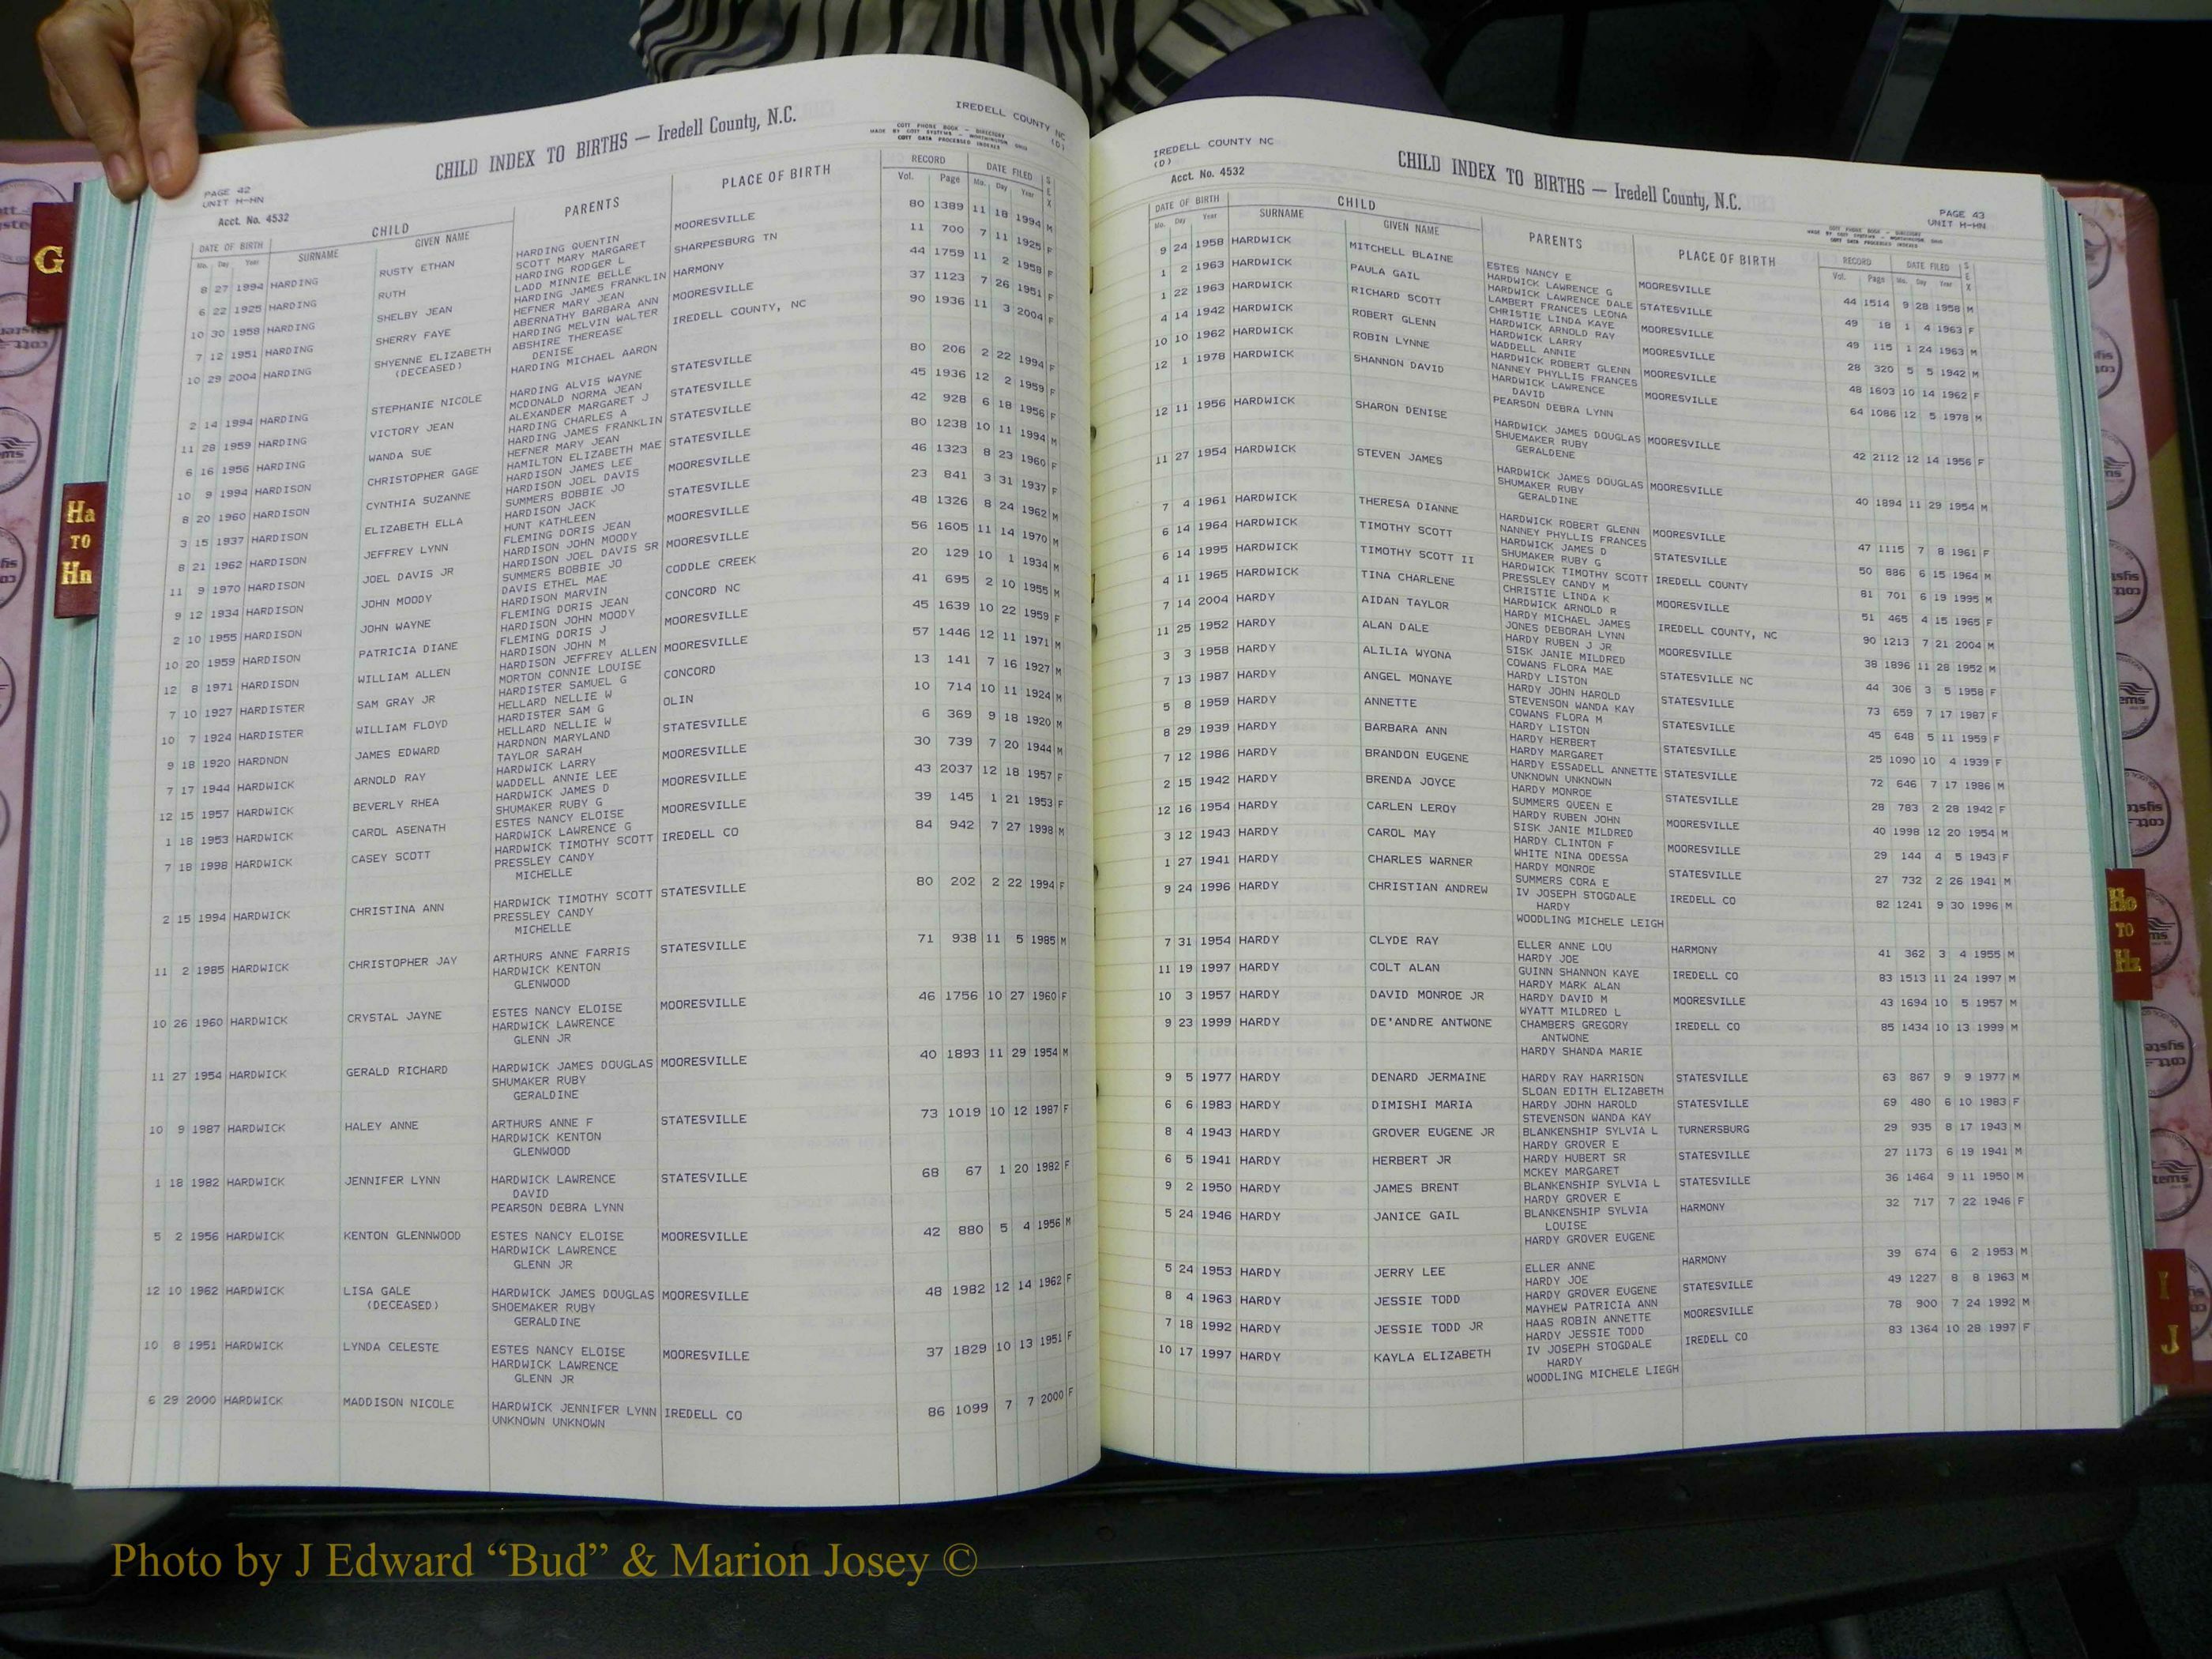 CHILD INDEX TO BIRTHS — Iredell County, N.C.
IREDELL COUNTY NC
(D)
COTT PHONE BOOK - DIRECTORY
MADE BY COTT SYSTEMS - WORTHINGTON, OHIO
COTT DATA PROCESSED INDEXES
PAGE 42
UNIT H-HN
Acct. No. 4532
DATE OF BIRTH CHILD PARENTS PLACE OF BIRTH RECORD DATE FILED SEX
Mo. Day Year SURNAME GIVEN NAME Vol. Page Mo. Day Year
8 27 1994 HARDING RUSTY ETHAN HARDING QUENTIN MOORESVILLE 80 1389 11 18 1994 M
SCOTT MARY MARGARET
6 22 1925 HARDING RUTH HARDING RODGER L SHARPESBURG TN 11 700 7 11 1925 F
LADD MINNIE BELLE
10 30 1958 HARDING SHELBY JEAN HARDING JAMES FRANKLIN HARMONY 44 1759 11 2 1958 F
HEFNER MARY JEAN
7 12 1951 HARDING SHERRY FAYE ABERNATHY BARBARA ANN MOORESVILLE 37 1123 7 26 1951 F
HARDING MELVIN WALTER
10 29 2004 HARDING SHYENNE ELIZABETH ABSHIRE THERESE IREDELL COUNTY, NC 90 1936 11 3 2004 F
(DECEASED) DENISE
HARDING MICHAEL AARON
2 14 1994 HARDING STEPHANIE NICOLE HARDING ALVIS WAYNE STATESVILLE 80 206 2 22 1994 F
MCDONALD NORMA JEAN
11 28 1959 HARDING VICTORY JEAN ALEXANDER MARGARET J STATESVILLE 45 1936 12 2 1959 F
HARDING CHARLES A
6 16 1956 HARDING WANDA SUE HARDING JAMES FRANKLIN STATESVILLE 42 928 6 18 1956 F
HEFNER MARY JEAN
10 9 1994 HARDISON CHRISTOPHER GAGE HAMILTON ELIZABETH MAE STATESVILLE 80 1238 10 11 1994 M
HARDISON JAMES LEE
8 20 1960 HARDISON CYNTHIA SUZANNE HARDISON JOEL DAVIS MOORESVILLE 46 1323 8 23 1960 F
SUMMERS BOBBIE JO
3 15 1937 HARDISON ELIZABETH ELLA HARDISON JACK STATESVILLE 23 841 3 31 1937 F
HUNT KATHLEEN
8 21 1962 HARDISON JEFFREY LYNN FLEMING DORIS JEAN MOORESVILLE 48 1326 8 24 1962 M
HARDISON JOHN MOODY
11 9 1970 HARDISON JOEL DAVIS JR HARDISON JOEL DAVIS SR MOORESVILLE 56 1605 11 14 1970 M
SUMMERS BOBBIE JO
9 12 1934 HARDISON JOHN MOODY DAVIS ETHEL MAE CODDLE CREEK 20 129 10 1 1934 M
HARDISON MARVIN
2 10 1955 HARDISON JOHN WAYNE FLEMING DORIS JEAN CONCORD NC 41 695 2 10 1955 M
HARDISON JOHN MOODY
10 20 1959 HARDISON PATRICIA DIANE FLEMING DORIS J MOORESVILLE 45 1639 10 22 1959 F
HARDISON JOHN M
12 8 1971 HARDISON WILLIAM ALLEN HARDISON JEFFREY ALLEN MOORESVILLE 57 1446 12 11 1971 M
MORTON CONNIE LOUISE
7 10 1927 HARDISTER SAM GRAY JR HARDISTER SAMUEL G CONCORD 13 141 7 16 1927 M
HELLARD NELLIE W
10 7 1924 HARDISTER WILLIAM FLOYD HARDISTER SAM G OLIN 10 714 10 11 1924 M
HELLARD NELLIE W
9 18 1920 HARDNON JAMES EDWARD HARDNON MARYLAND STATESVILLE 6 369 9 18 1920 M
TAYLOR SARAH
7 17 1944 HARDWICK ARNOLD RAY HARDWICK LARRY MOORESVILLE 30 739 7 20 1944 M
WADDELL ANNIE LEE
12 15 1957 HARDWICK BEVERLY RHEA HARDWICK JAMES D MOORESVILLE 43 2037 12 18 1957 F
SHUMAKER RUBY G
1 18 1953 HARDWICK CAROL ASENATH ESTES NANCY ELOISE MOORESVILLE 39 145 1 21 1953 F
HARDWICK LAWRENCE G
7 18 1998 HARDWICK CASEY SCOTT HARDWICK TIMOTHY SCOTT IREDELL CO 84 942 7 27 1998 M
PRESSLEY CANDY
MICHELLE
2 15 1994 HARDWICK CHRISTINA ANN HARDWICK TIMOTHY SCOTT STATESVILLE 80 202 2 22 1994 F
PRESSLEY CANDY
MICHELLE
11 2 1985 HARDWICK CHRISTOPHER JAY ARTHURS ANNE FARRIS STATESVILLE 71 938 11 5 1985 M
HARDWICK KENTON
GLENWOOD
10 26 1960 HARDWICK CRYSTAL JAYNE ESTES NANCY ELOISE MOORESVILLE 46 1756 10 27 1960 F
HARDWICK LAWRENCE
GLENN JR
11 27 1954 HARDWICK GERALD RICHARD HARDWICK JAMES DOUGLAS MOORESVILLE 40 1893 11 29 1954 M
SHUMAKER RUBY
GERALDINE
10 9 1987 HARDWICK HALEY ANNE ARTHURS ANNE F STATESVILLE 73 1019 10 12 1987 F
HARDWICK KENTON
GLENWOOD
1 18 1982 HARDWICK JENNIFER LYNN HARDWICK LAWRENCE STATESVILLE 68 67 1 20 1982 F
DAVID
PEARSON DEBRA LYNN
5 2 1956 HARDWICK KENTON GLENNWOOD ESTES NANCY ELOISE MOORESVILLE 42 880 5 4 1956 M
HARDWICK LAWRENCE
GLENN JR
12 10 1962 HARDWICK LISA GALE HARDWICK JAMES DOUGLAS MOORESVILLE 48 1982 12 14 1962 F
(DECEASED) SHOEMAKER RUBY
GERALDINE
10 8 1951 HARDWICK LYNDA CELESTE ESTES NANCY ELOISE MOORESVILLE 37 1829 10 13 1951 F
HARDWICK LAWRENCE
GLENN JR
6 29 2000 HARDWICK MADDISON NICOLE HARDWICK JENNIFER LYNN IREDELL CO 86 1099 7 7 2000 F
UNKNOWN UNKNOWN
IREDELL COUNTY NC
(D)
Acct. No. 4532
CHILD INDEX TO BIRTHS — Iredell County, N.C.
PAGE 43
UNIT H-HN
COTT PHONE BOOK - DIRECTORY
MADE BY COTT SYSTEMS - WORTHINGTON, OHIO
COTT DATA PROCESSED INDEXES
DATE OF BIRTH CHILD PARENTS PLACE OF BIRTH RECORD DATE FILED SEX
Mo. Day Year SURNAME GIVEN NAME Vol. Page Mo. Day Year
9 24 1958 HARDWICK MITCHELL BLAINE ESTES NANCY E MOORESVILLE 44 1514 9 28 1958 M
HARDWICK LAWRENCE G
1 2 1963 HARDWICK PAULA GAIL HARDWICK LAWRENCE DALE STATESVILLE 49 18 1 4 1963 F
LAMBERT FRANCES LEONA
1 22 1963 HARDWICK RICHARD SCOTT CHRISTIE LINDA KAYE MOORESVILLE 49 115 1 24 1963 M
HARDWICK ARNOLD RAY
4 14 1942 HARDWICK ROBERT GLENN HARDWICK LARRY MOORESVILLE 28 320 5 5 1942 M
WADDELL ANNIE
10 10 1962 HARDWICK ROBIN LYNNE HARDWICK ROBERT GLENN MOORESVILLE 48 1603 10 14 1962 F
NANNEY PHYLLIS FRANCES
12 1 1978 HARDWICK SHANNON DAVID HARDWICK LAWRENCE MOORESVILLE 64 1086 12 5 1978 M
DAVID
PEARSON DEBRA LYNN
12 11 1956 HARDWICK SHARON DENISE HARDWICK JAMES DOUGLAS MOORESVILLE 42 2112 12 14 1956 F
SHUEMAKER RUBY
GERALDENE
11 27 1954 HARDWICK STEVEN JAMES HARDWICK JAMES DOUGLAS MOORESVILLE 40 1894 11 29 1954 M
SHUMAKER RUBY
GERALDINE
7 4 1961 HARDWICK THERESA DIANNE HARDWICK ROBERT GLENN MOORESVILLE 47 1115 7 8 1961 F
NANNEY PHYLLIS FRANCES
6 14 1964 HARDWICK TIMOTHY SCOTT HARDWICK JAMES D STATESVILLE 50 886 6 15 1964 M
SHUMAKER RUBY G
6 14 1995 HARDWICK TIMOTHY SCOTT II HARDWICK TIMOTHY SCOTT IREDELL COUNTY 81 701 6 19 1995 M
PRESSLEY CANDY M
4 11 1965 HARDWICK TINA CHARLENE CHRISTIE LINDA K MOORESVILLE 51 465 4 15 1965 F
HARDWICK ARNOLD R
7 14 2004 HARDY AIDAN TAYLOR HARDY MICHAEL JAMES IREDELL COUNTY, NC 90 1213 7 21 2004 M
JONES DEBORAH LYNN
11 25 1952 HARDY ALAN DALE HARDY RUBEN J JR MOORESVILLE 38 1896 11 28 1952 M
SISK JANIE MILDRED
3 3 1958 HARDY ALILIA WYONA COWANS FLORA MAE STATESVILLE NC 44 306 3 5 1958 F
HARDY LISTON
7 13 1987 HARDY ANGEL MONAYE HARDY JOHN HAROLD STATESVILLE 73 659 7 17 1987 F
STEVENSON WANDA KAY
5 8 1959 HARDY ANNETTE COWANS FLORA M STATESVILLE 45 648 5 11 1959 F
HARDY LISTON
8 29 1939 HARDY BARBARA ANN HARDY HERBERT STATESVILLE 25 1090 10 4 1939 F
HARDY MARGARET
7 12 1986 HARDY BRANDON EUGENE HARDY ESSADELL ANNETTE STATESVILLE 72 646 7 17 1986 M
UNKNOWN UNKNOWN
2 15 1942 HARDY BRENDA JOYCE HARDY MONROE STATESVILLE 28 783 2 28 1942 F
SUMMERS QUEEN E
12 16 1954 HARDY CARLEN LEROY HARDY RUBEN JOHN MOORESVILLE 40 1998 12 20 1954 M
SISK JANIE MILDRED
3 12 1943 HARDY CAROL MAY HARDY CLINTON F MOORESVILLE 29 144 4 5 1943 F
WHITE NINA ODESSA
1 27 1941 HARDY CHARLES WARNER HARDY MONROE STATESVILLE 27 732 2 26 1941 M
SUMMERS CORA E
9 24 1996 HARDY CHRISTIAN ANDREW IV JOSEPH STOGDALE IREDELL CO 82 1241 9 30 1996 M
HARDY
WOODLING MICHELE LEIGH
7 31 1954 HARDY CLYDE RAY ELLER ANNE LOU HARMONY 41 362 3 4 1955 M
HARDY JOE
11 19 1997 HARDY COLT ALAN GUINN SHANNON KAYE IREDELL CO 83 1513 11 24 1997 M
HARDY MARK ALAN
10 3 1957 HARDY DAVID MONROE JR HARDY DAVID M MOORESVILLE 43 1694 10 5 1957 M
WYATT MILDRED L
9 23 1999 HARDY DE'ANDRE ANTWONE CHAMBERS GREGORY IREDELL CO 85 1434 10 13 1999 M
ANTWONE
HARDY SHANDA MARIE
9 5 1977 HARDY DENARD JERMAINE HARDY RAY HARRISON STATESVILLE 63 867 9 9 1977 M
SLOAN EDITH ELIZABETH
6 6 1983 HARDY DIMISHI MARIA HARDY JOHN HAROLD STATESVILLE 69 480 6 10 1983 F
STEVENSON WANDA KAY
8 4 1943 HARDY GROVER EUGENE JR BLANKENSHIP SYLVIA L TURNERSBURG 29 935 8 17 1943 M
HARDY GROVER E
6 5 1941 HARDY HERBERT JR HARDY HUBERT SR STATESVILLE 27 1173 6 19 1941 M
MCKEY MARGARET
9 2 1950 HARDY JAMES BRENT BLANKENSHIP SYLVIA L STATESVILLE 36 1464 9 11 1950 M
HARDY GROVER E
5 24 1946 HARDY JANICE GAIL BLANKENSHIP SYLVIA HARMONY 32 717 7 22 1946 F
LOUISE
HARDY GROVER EUGENE
5 24 1953 HARDY JERRY LEE ELLER ANNE HARMONY 39 674 6 2 1953 M
HARDY JOE
8 4 1963 HARDY JESSIE TODD HARDY GROVER EUGENE STATESVILLE 49 1227 8 8 1963 M
MAYHEW PATRICIA ANN
7 18 1992 HARDY JESSIE TODD JR HAAS ROBIN ANNETTE MOORESVILLE 78 900 7 24 1992 M
HARDY JESSIE TODD
10 17 1997 HARDY KAYLA ELIZABETH IV JOSEPH STOGDALE IREDELL CO 83 1364 10 28 1997 F
HARDY
WOODLING MICHELE LIEGH
G
Ha
TO
Hn
Ho
TO
Hz
I
J
Photo by J Edward “Bud” & Marion Josey ©